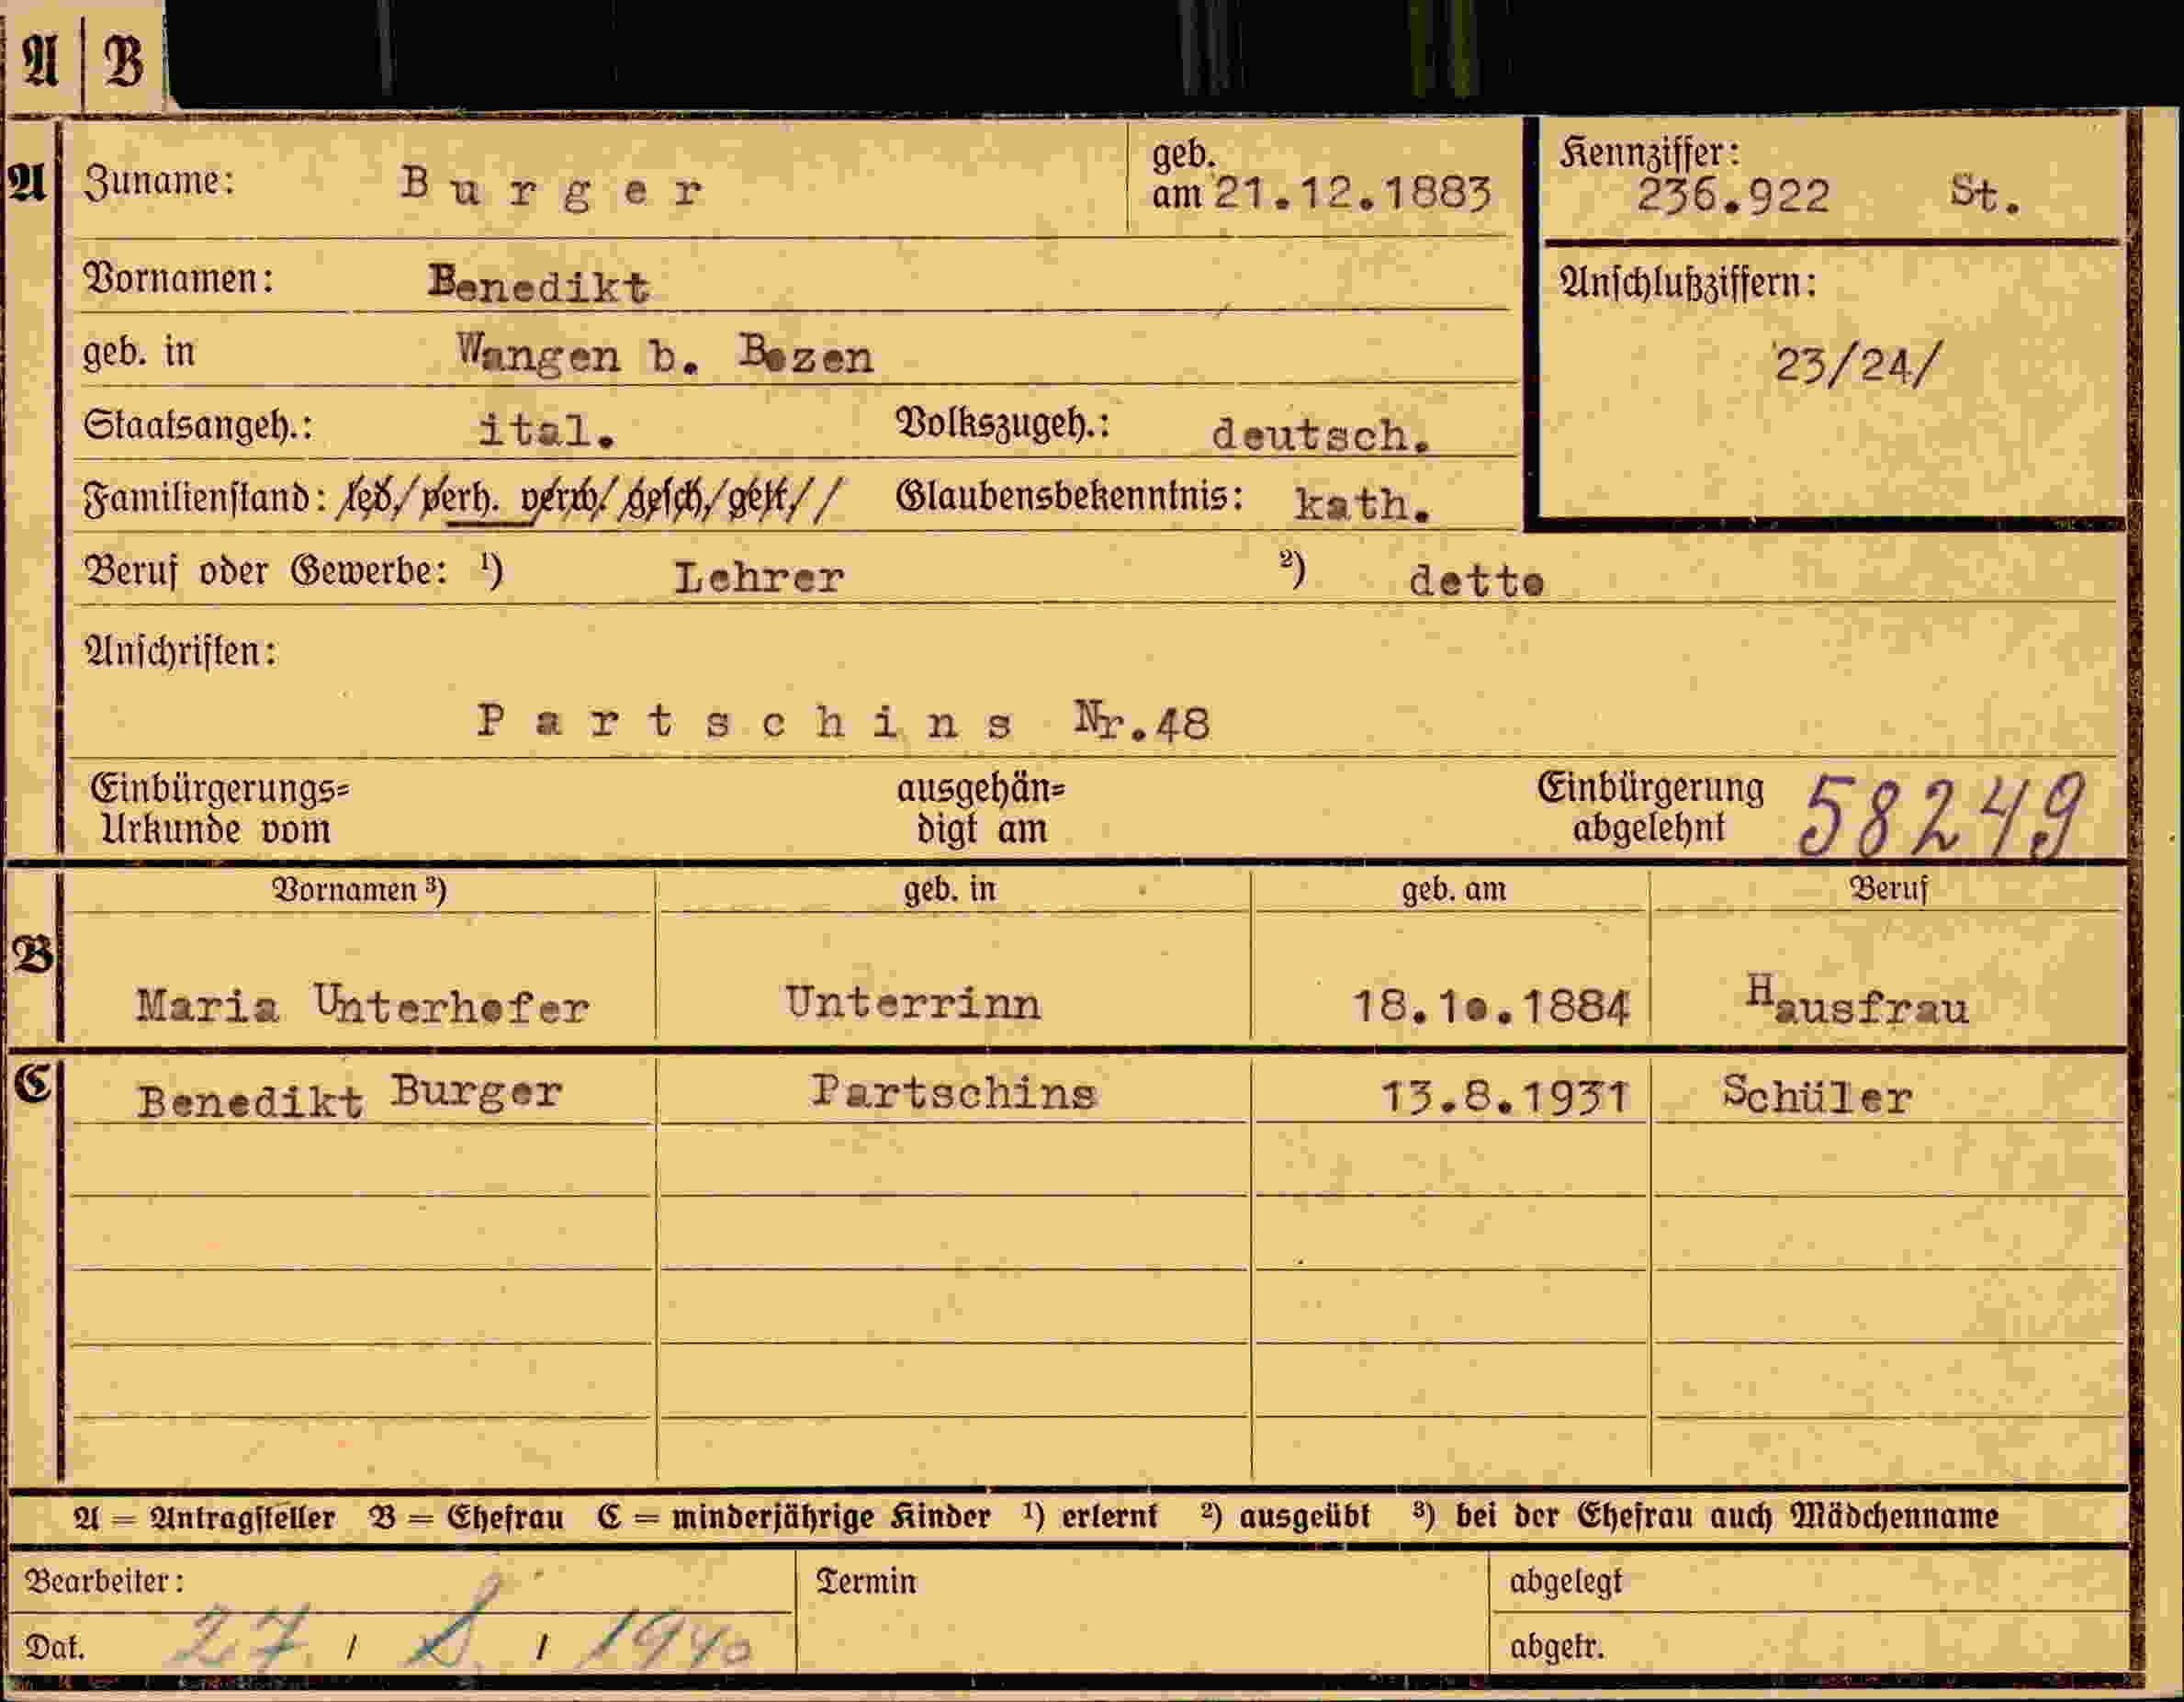 A | B
A
Zuname: Burger geb. am 21.12.1883
Kennziffer: 236.922 St.
Vornamen: Benedikt
Anschlußziffern: 23/24/
geb. in Wangen b. Bozen
Staatsangeh.: ital. Volkszugeh.: deutsch.
Familienstand: led/verh. verw/gesch/getr// Glaubensbekenntnis: kath.
Beruf oder Gewerbe: 1) Lehrer 2) detto
Anschriften:
Partschins Nr.48
Einbürgerungs= Urkunde vom ausgehän= digt am Einbürgerung abgelehnt 58249
Vornamen 3) geb. in geb. am Beruf
B
Maria Unterhofer Unterrinn 18.10.1884 Hausfrau
C
Benedikt Burger Partschins 13.8.1931 Schüler
A = Antragsteller B = Ehefrau C = minderjährige Kinder 1) erlernt 2) ausgeübt 3) bei der Ehefrau auch Mädchenname
Bearbeiter: Termin abgelegt
Dat. 27. / 8. / 1940 abgetr.